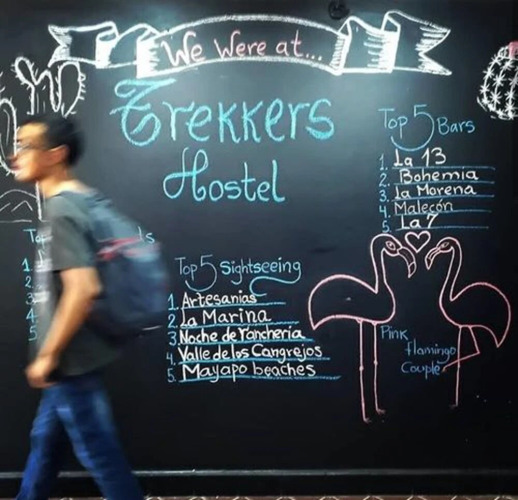 We Were at...
Trekkers
Hostel
Top 5 Bars
1. La 13
2. Bohemia
3. La Morena
4. Malecón
5. La 7
To s
1.
2.
3
4
5
Top 5 Sightseeing
1. Artesanias
2. La Marina
3. Noche de rancheria
4. Valle de los Cangrejos
5. Mayapo beaches
Pink
flamingo
Couple